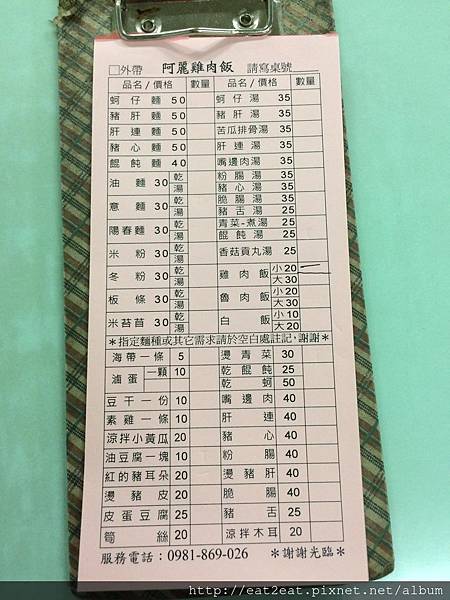 □外帶 阿麗雞肉飯 請寫桌號
品名/價格 數量 品名/價格 數量
蚵仔麵 50 蚵仔湯 35
豬肝麵 50 豬肝湯 35
肝連麵 50 苦瓜排骨湯 35
豬心麵 50 肝連湯 35
餛飩麵 40 嘴邊肉湯 35
油麵 30 乾 湯 粉腸湯 35
豬心湯 35
意麵 30 乾 湯 脆腸湯 35
豬舌湯 25
陽春麵 30 乾 湯 青菜-煮湯 25
餛飩湯 25
米粉 30 乾 湯 香菇貢丸湯 25
冬粉 30 乾 湯 雞肉飯 小20 大30
板條 30 乾 湯 魯肉飯 小20 大30
米苔苜 30 乾 湯 白飯 小10 大20
*指定麵種或其它需求請於空白處註記,謝謝*
海帶一條 5 燙青菜 30
滷蛋 一顆 10 乾餛飩 25
乾蚵 50
豆干一份 10 嘴邊肉 40
素雞一條 10 肝連 40
涼拌小黃瓜 20 豬心 40
油豆腐一塊 10 粉腸 40
紅的豬耳朵 20 燙豬肝 40
燙豬皮 20 脆腸 40
皮蛋豆腐 25 豬舌 25
筍絲 20 涼拌木耳 20
服務電話:0981-869-026 *謝謝光臨*
http://eat2eat.pixnet.net/album